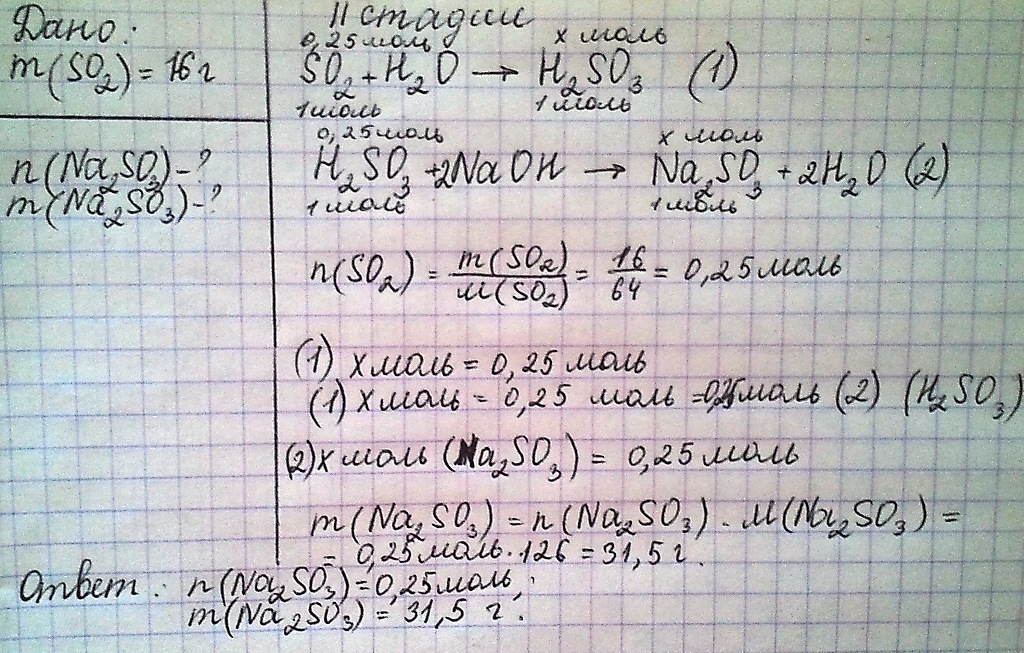 Дано:
m(SO₂) = 16 г
n(Na₂SO₃) - ?
m(Na₂SO₃) - ?
II стадии
0,25 моль х моль
SO₂ + H₂O → H₂SO₃ (1)
1 моль 1 моль
0,25 моль х моль
H₂SO₃ + 2NaOH → Na₂SO₃ + 2H₂O (2)
1 моль 1 моль
n(SO₂) = m(SO₂)/M(SO₂) = 16/64 = 0,25 моль
(1) х моль = 0,25 моль
(1) х моль = 0,25 моль = 0,25 моль (2) (H₂SO₃)
(2) х моль (Na₂SO₃) = 0,25 моль
m(Na₂SO₃) = n(Na₂SO₃) · M(Na₂SO₃) =
= 0,25 моль · 126 = 31,5 г.
Ответ: n(Na₂SO₃) = 0,25 моль;
m(Na₂SO₃) = 31,5 г.